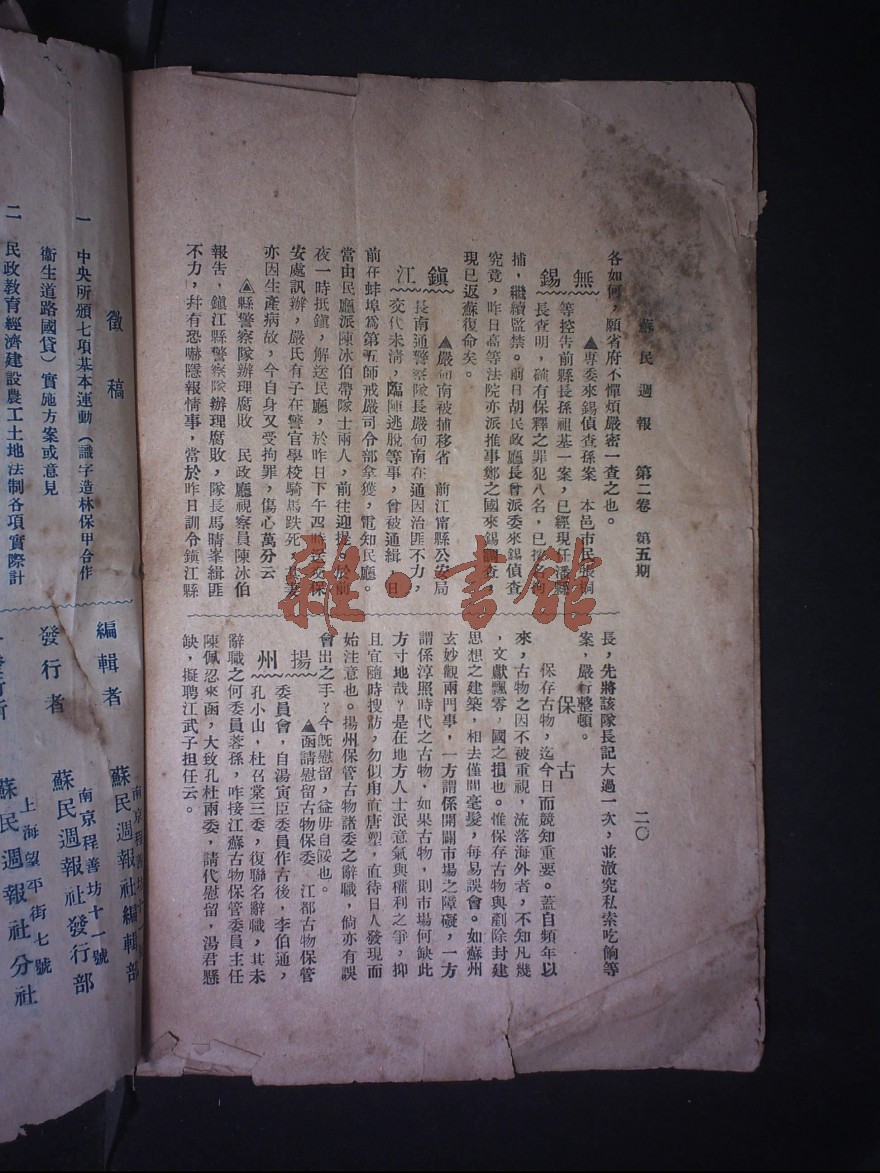 蘇民週報　第二卷　第五期
二〇
各如何，願省府不憚煩嚴密一查之也。
無錫
▲專委來錫偵查孫案　本邑市民張桐
等控告前縣長孫祖基一案，已經現任潘縣
長查明，確有保釋之罪犯八名，已按名拘
捕，繼續監禁。前日胡民政廳長曾派委來錫偵查
究竟，昨日高等法院亦派推事鄭之國來錫調查，
現已返蘇復命矣。
鎭江
▲嚴旬南被捕移省　前江甯縣公安局
長南通警察隊長嚴旬南在通因治匪不力，
交代未清，臨陣逃脫等事，曾被通緝　日
前在蚌埠爲第五師戒嚴司令部拿獲，電知民廳。
當由民廳派陳冰伯帶隊士兩人，前往迎提。於前
夜一時抵鎮，解送民廳，於昨日下午四時送交保
安處訊辦，嚴氏有子在警官學校騎馬跌死，其妻
亦因生產病故，今自身又受拘罪，傷心萬分云
▲縣警察隊辦理腐敗　民政廳視察員陳冰伯
報告，鎭江縣警察隊辦理腐敗，隊長馬晴峯緝匪
不力，幷有恐嚇隱報情事，當於昨日訓令鎭江縣
長，先將該隊長記大過一次，並澈究私索吃餉等
案，嚴行整頓。
保古
保存古物，迄今日而競知重要。蓋自頻年以
來，古物之因不被重視，流落海外者，不知凡幾
，文獻飄零，國之損也。惟保存古物與剷除封建
思想之建築，相去僅間毫髮，每易誤會。如蘇州
玄妙觀兩門事，一方謂係開闢市場之障礙，一方
謂係淳照時代之古物，如果古物，則市場何缺此
方寸地哉？是在地方人士泯意氣與權利之爭，抑
且宜隨時搜訪，勿似甪直唐塑，直待日人發現而
始注意也。揚州保管古物諸委之辭職，倘亦有誤
會出之乎？今旣慰留，益毋自餒也。
揚州
▲函請慰留古物保委　江都古物保管
委員會，自湯寅臣委員作古後，李伯通，
孔小山，杜召棠三委，復聯名辭職，其未
辭職之何委員蓉孫，咋接江蘇古物保管委員主任
陳佩忍來函，大致孔杜兩委，請代慰留，湯君懸
缺，擬聘江武子担任云。
徵稿
一　中央所頒七項基本運動（識字造林保甲合作
衞生道路國貨）實施方案或意見
二　民政教育經濟建設農工土地法制各項實際計
編輯者
南京程善坊十一號
蘇民週報社編輯部
發行者
南京程善坊十一號
蘇民週報社發行部
上海望平街七號
蘇民週報社分社
雜·書館